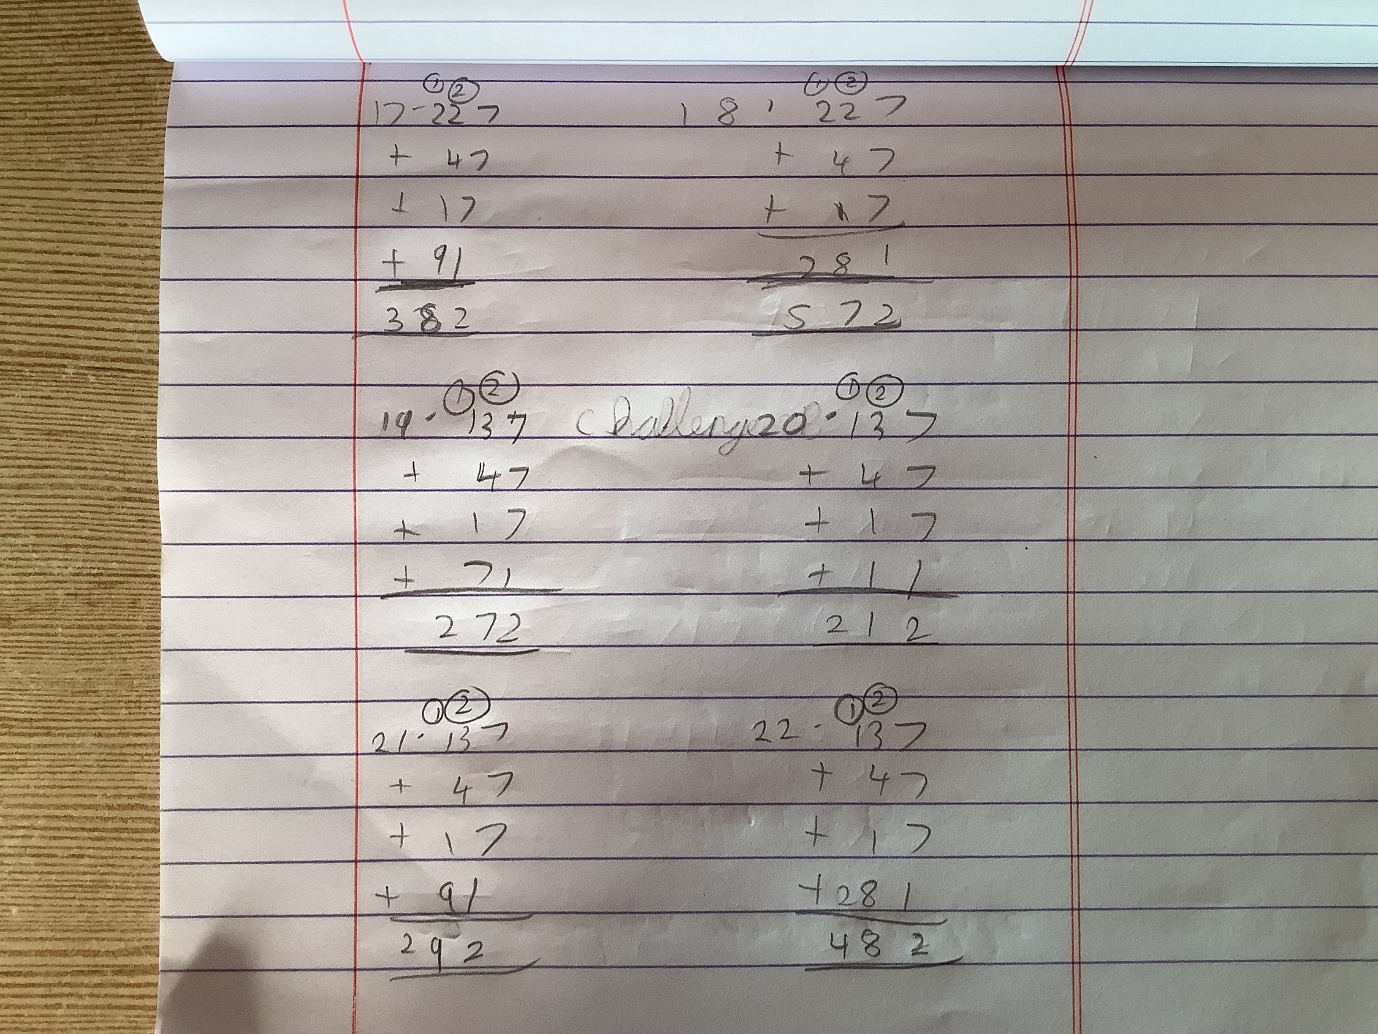 ① ②
17. 227
+ 47
+ 17
+ 91
382
① ②
18. 227
+ 47
+ 17
281
572
① ②
19. 137
+ 47
+ 17
+ 71
272
Challenge
① ②
20. 137
+ 47
+ 17
+ 11
212
① ②
21. 137
+ 47
+ 17
+ 91
292
① ②
22. 137
+ 47
+ 17
+ 281
482